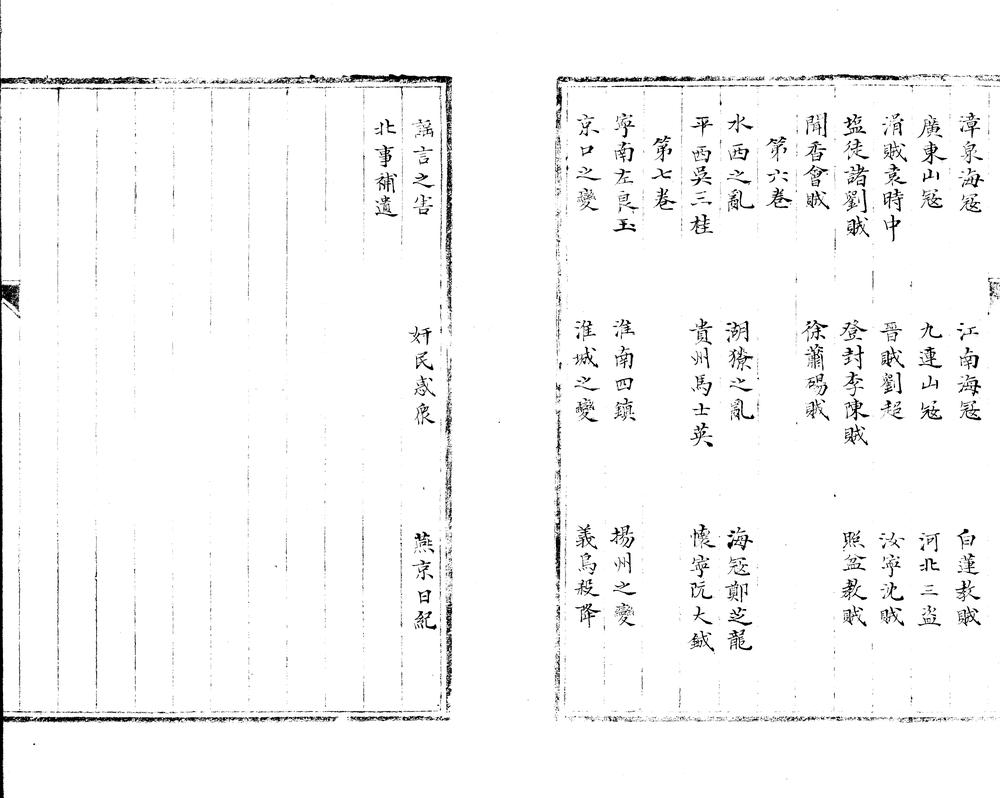 漳泉海寇　江南海寇　白蓮教賊
廣東山寇　九連山寇　河北三盗
涓賊袁時中　晉賊劉超　汝寧沈賊
塩徒諸劉賊　登封李陳賊　照盆教賊
聞香會賊　徐蕭碭賊
第六卷
水西之亂　湖獠之亂　海寇鄭芝龍
平西吳三桂　貴州馬士英　懷寧阮大鋮
第七卷
寧南左良玉　淮南四鎮　揚州之變
京口之變　淮城之變　義烏殺降
謠言之害　奸民惑衆　燕京日紀
北事補遺